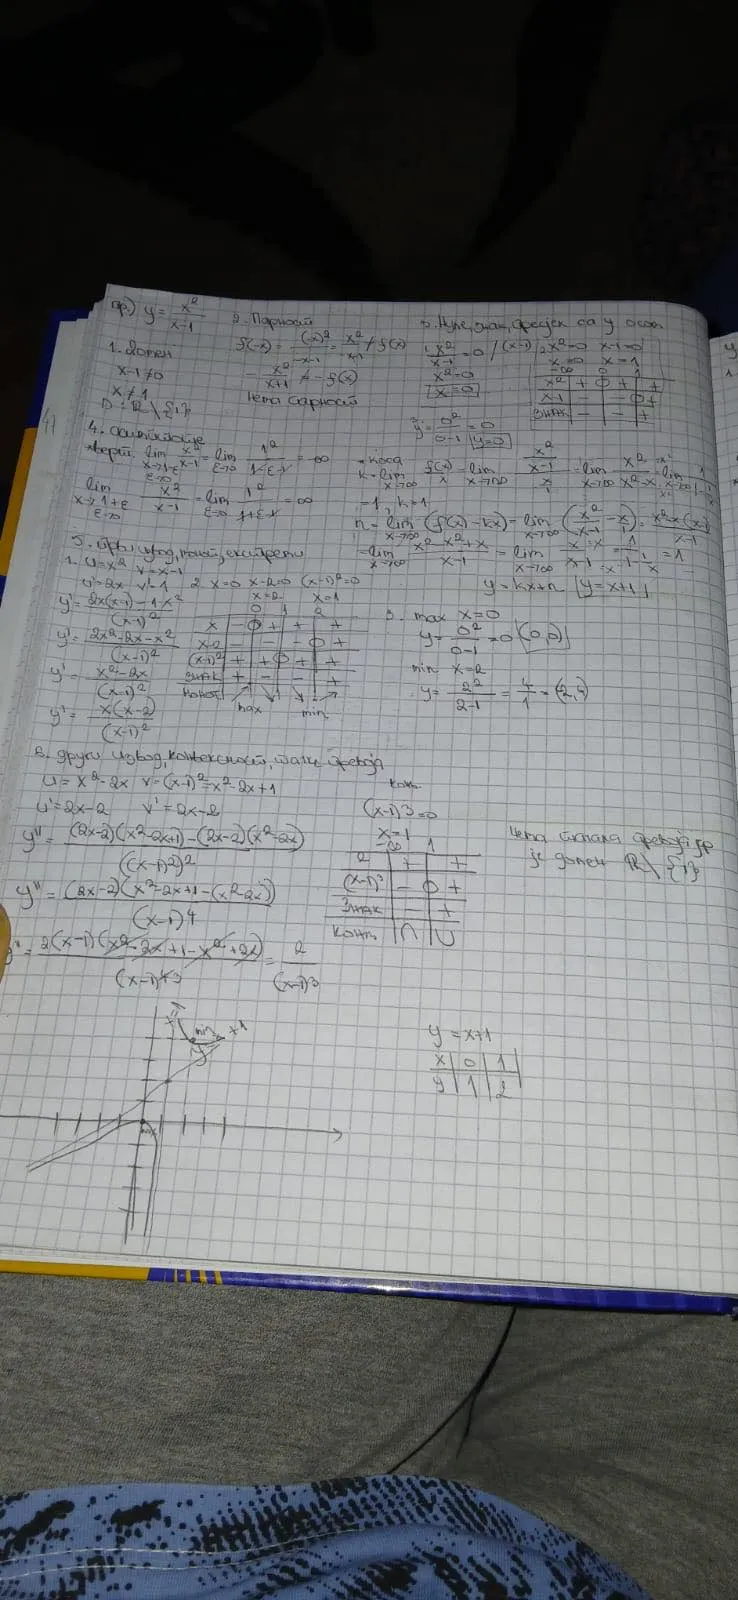 пр.) y = x²/(x-1)
1. Домен
x-1≠0
x≠1
D: ℝ\{1}
2. Парност
f(-x) = (-x)²/(-x-1) = x²/(-x-1) ≠ f(x)
- x²/(x+1) ≠ -f(x)
Нема парност
3. Нуле, знак, пресјек са y осом
x²/(x-1) = 0 /(x-1)
x² = 0
x = 0
y = 0²/(0-1) = 0 y=0
2. x²=0 x-1=0
x=0 x=1
-∞ 0 1
x² + 0 + +
x-1 - - 0 +
знак - - +
4. асимптоте
верт. lim x→1-ε ε→0 x²/(x-1) = lim ε→0 1²/(1-ε-1) = -∞
lim x→1+ε ε→0 x²/(x-1) = lim ε→0 1²/(1+ε-1) = ∞
коса
k = lim x→∞ f(x)/x = lim x→∞
= 1, k=1
n = lim x→∞ (f(x)-kx) = lim x→∞ (x²/(x-1) - x/1) =
= lim x→∞ (x²-x²+x)/(x-1) = lim x→∞ = 1
y = kx+n y=x+1
5. Први извод, монот, екстреми
1. u=x² v=x-1
u'=2x v'=1
y' = (2x(x-1)-1·x²)/(x-1)²
y' = (2x²-2x-x²)/(x-1)²
y' = (x²-2x)/(x-1)²
y' = x(x-2)/(x-1)²
2. x=0 x-2=0 (x-1)²=0
x=2 x=1
0 1 2
x - 0 + + +
x-2 - - - 0 +
(x-1)² + + 0 + +
знак + - - +
монот. ↗ ↘ ↘ ↗
max min
3. max x=0
y = 0²/(0-1) = 0 (0,0)
min x=2
y = 2²/(2-1) = 4/1 = (2,4)
6. други извод, конвексност,
u = x²-2x v = (x-1)² = x²-2x+1
u' = 2x-2 v' = 2x-2
y'' = ((2x-2)(x²-2x+1)-(2x-2)(x²-2x))/((x-1)²)²
y'' = (2x-2)(x²-2x+1-(x²-2x))/(x-1)4
y'' = 2(x-1)(x²-2x+1-x²+2x)/(x-1)43 = 2/(x-1)3
конт
(x-1)3=0
x=1
-∞ 1
2 + +
(x-1)3 - 0 +
знак - +
конт ∩ ∪
је домен ℝ\{1}
min
max
y = x+1
x 0 1
y 1 2